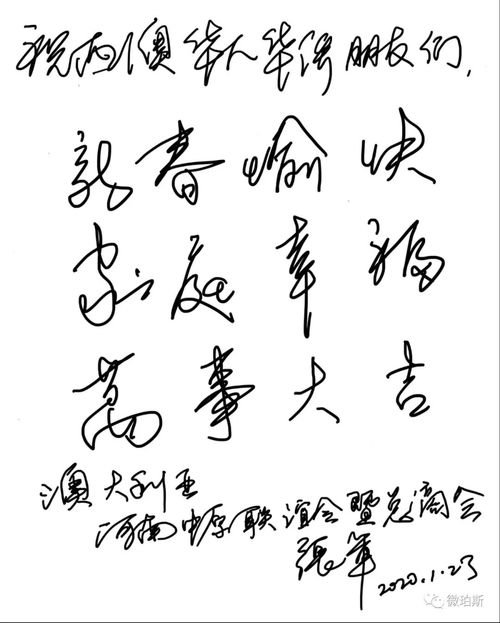 祝西澳华人华侨朋友们,
新春愉快
家庭幸福
萬事大吉
澳大利亚
河南中原联谊会暨总商会
張軍
2020.1.23
微珀斯